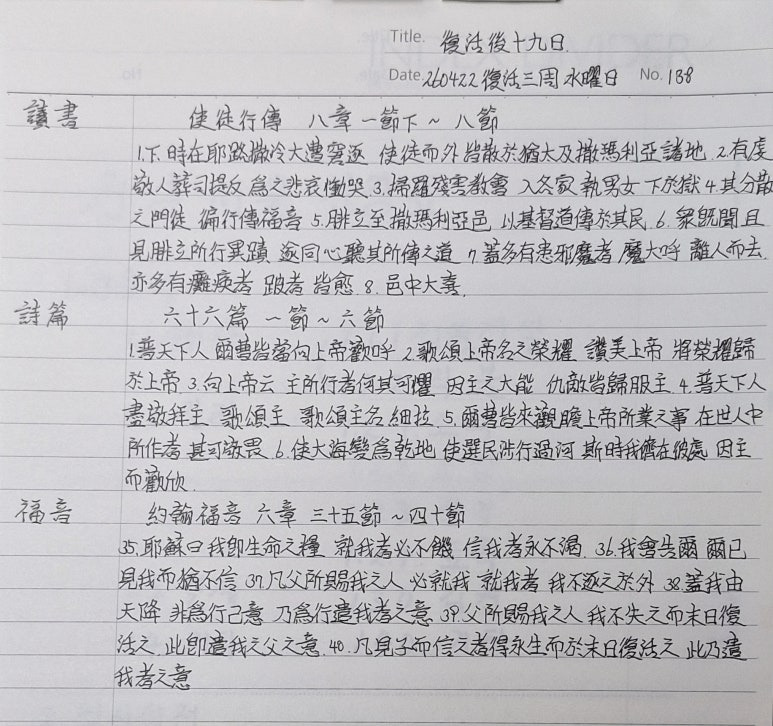 Title. 復活後十九日.
Date. 260422 復活三周 水曜日 No. 138
讀書 使徒行傳 八章 一節下 ~ 八節
1.下. 時在耶路撒冷大遭窘逐 使徒而外 皆散於猶大及撒瑪利亞諸地. 2.有虔
敬人葬司提反 爲之悲哀慟哭. 3.掃羅殘害教會 入各家 執男女 下於獄 4.其分散
之門徒 徧行傳福音 5.腓立至撒瑪利亞邑 以基督道傳於其民. 6. 衆既聞且
見腓立所行異蹟 遂同心聽其所傳之道 7.蓋多有患邪魔者 魔大呼 離人而去.
亦多有癱瘓者 跛者 皆愈. 8. 邑中大喜.
詩篇 六十六篇 一節 ~ 六節
1.普天下人 爾曹皆當向上帝歡呼 2.歌頌上帝名之榮耀 讚美上帝 將榮耀歸
於上帝 3.向上帝云 主所行者何其可懼 因主之大能 仇敵皆歸服主. 4.普天下人
盡敬拜主 歌頌主 歌頌主名 細拉. 5.爾曹皆來觀瞻上帝所業之事 在世人中
所作者 甚可敬畏. 6.使大海變爲乾地 使選民涉行過河 斯時我儕在彼處 因主
而歡欣.
福音 約翰福音 六章 三十五節 ~ 四十節
35.耶穌曰我卽生命之糧 就我者必不饑 信我者永不渴. 36.我曾告爾 爾已
見我而猶不信 37.凡父所賜我之人 必就我 就我者 我不逐之於外 38.蓋我由
天降 非爲行己意 乃爲行遣我者之意. 39.父所賜我之人 我不失之而末日復
活之. 此卽遣我之父之意. 40. 凡見子而信之者得永生而於末日復活之 此乃遣
我者之意